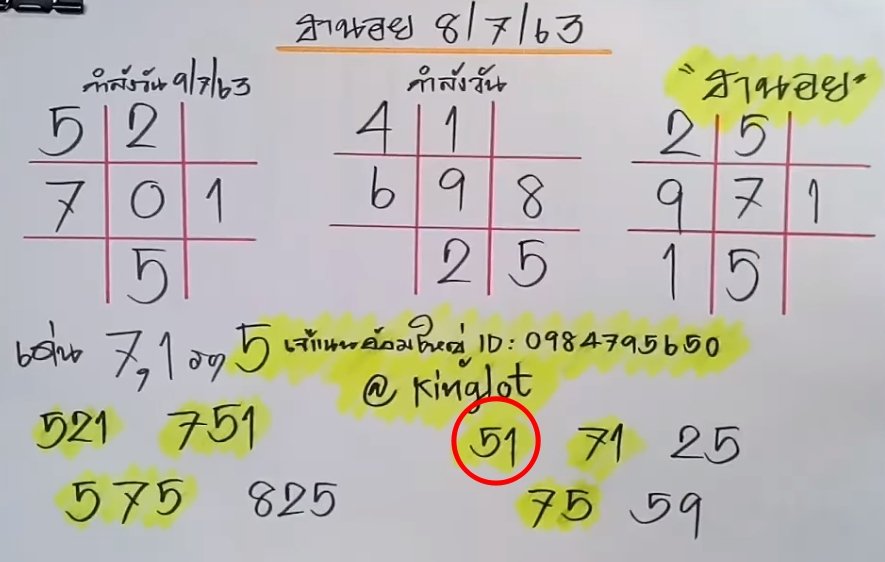 ฮานอย 8/7/63
กำลังวัน 9/7/63
5 2
7 0 1
5
กำลังวัน
4 1
6 9 8
2 5
"ฮานอย"
2 5
9 7 1
1 5
เด่น 7,1 รอง 5 ID: 0984795650
@ Kinglot
521 751
575 825
51 71 25
75 59